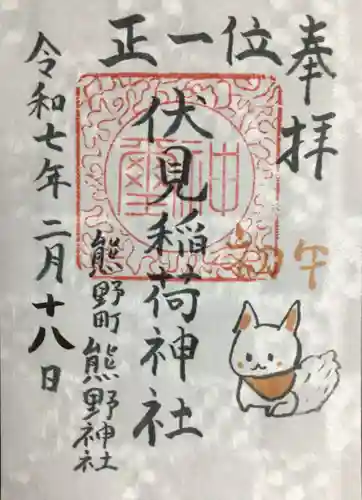 奉拝
正一位
伏見稲荷神社
初午
熊野町熊野神社
令和七年二月十八日